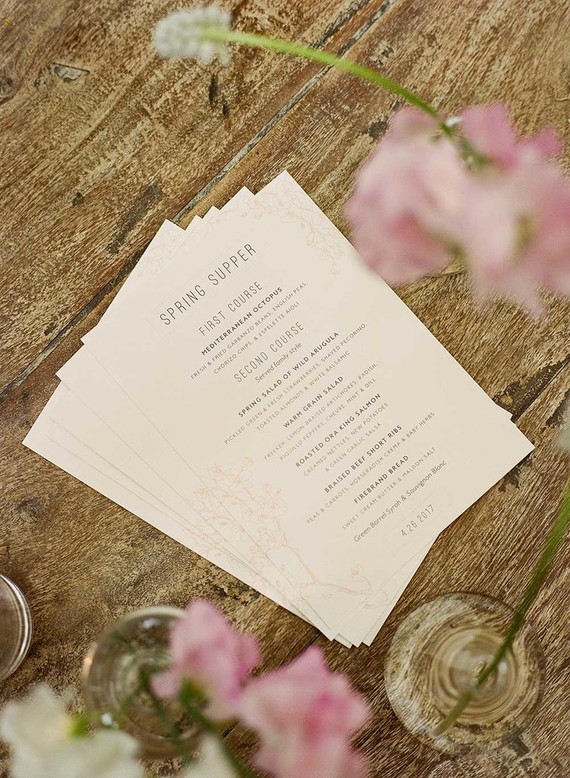 SPRING SUPPER
FIRST COURSE
MEDITERRANEAN OCTOPUS
FRESH & FRIED GARBANZO BEANS, ENGLISH PEAS,
CHORIZO CHIPS, & ESPELETTE AIOLI
SECOND COURSE
Served family style
SPRING SALAD OF WILD ARUGULA
PICKLED GREEN & FRESH STRAWBERRIES, SHAVED PECORINO,
TOASTED ALMONDS & WHITE BALSAMIC
WARM GRAIN SALAD
FREEKEH, LEMON-BRAISED ARTICHOKES, RADISH,
AQUIOLO PEPPERS, CHEVRE, MINT & DILL
ROASTED ORA KING SALMON
CREAMED NETTLES, NEW POTATOES
& GREEN GARLIC SALSA
BRAISED BEEF SHORT RIBS
PEAS & CARROTS, HORSERADISH CREMA & BABY HERBS
FIREBRAND BREAD
SWEET CREAM BUTTER & MALDON SALT
Green Barrel Syrah & Sauvignon Blanc
4.26.2017